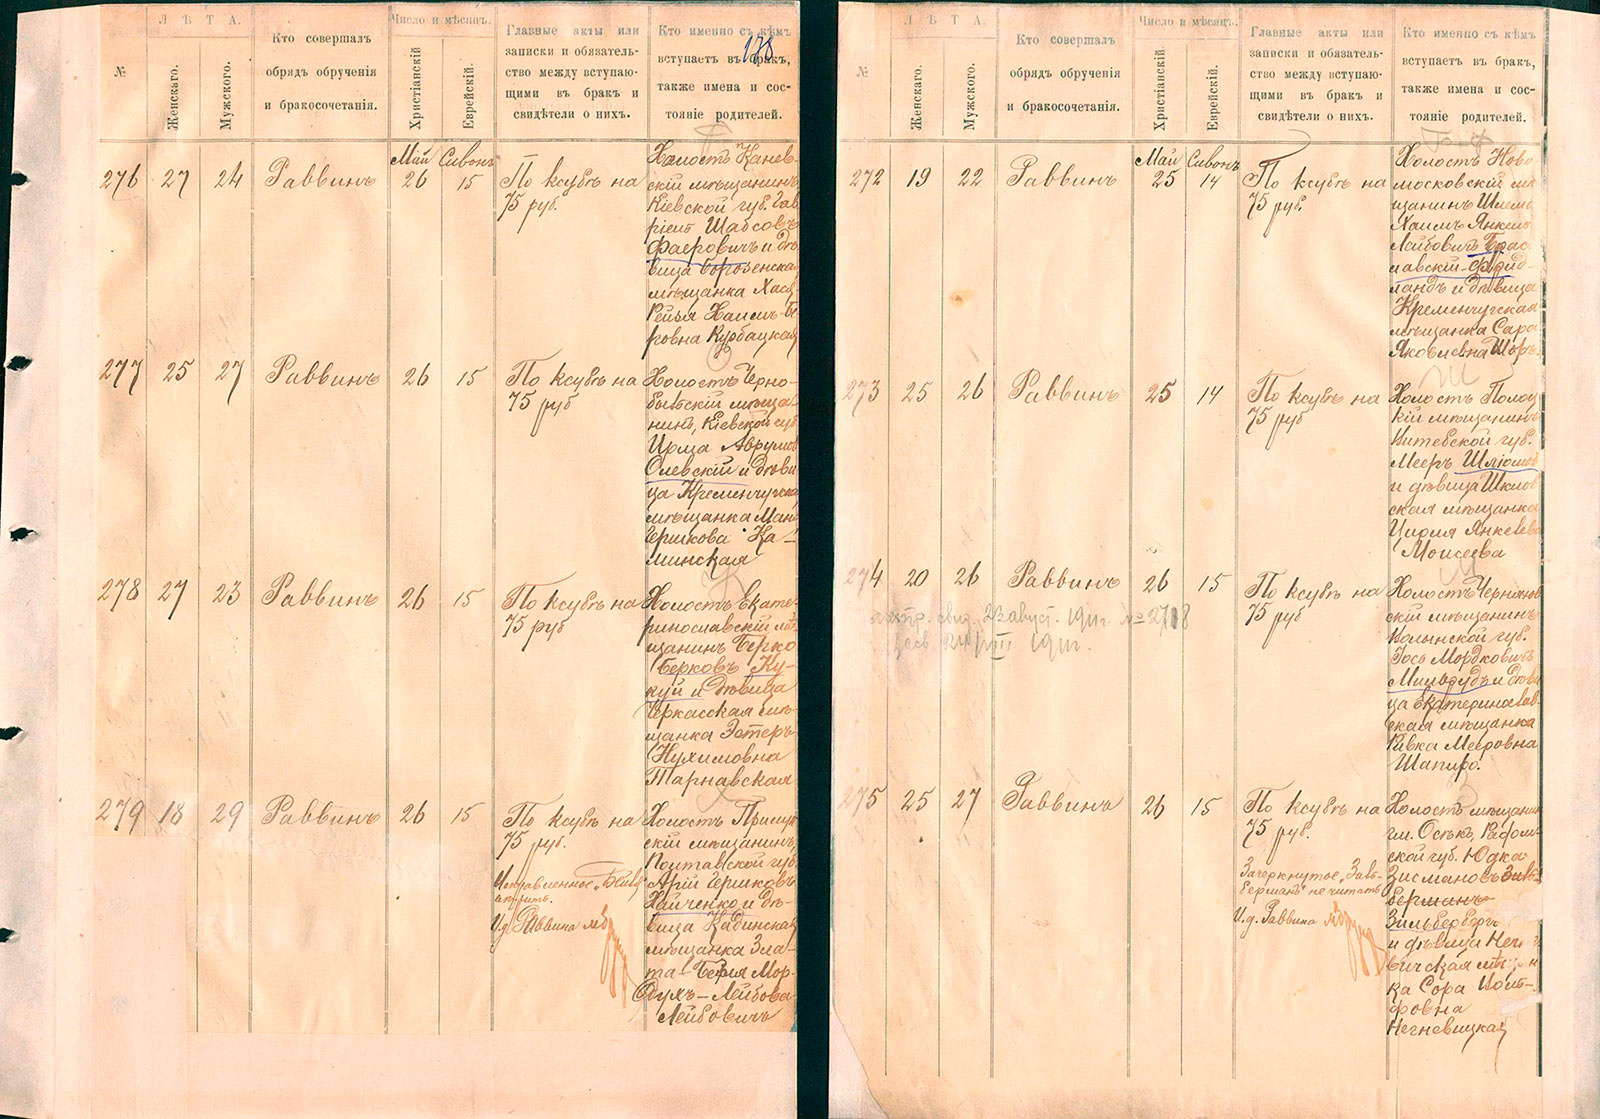 Л Ѣ Т А.
№
Женскаго.
Мужского.
Кто совершалъ
обрядъ обрученія
и бракосочетанія.
Число и мѣсяцъ.
Христіанскій
Еврейскій.
Главные акты или
записки и обязатель-
ство между вступаю-
щими въ бракъ и
свидѣтели о нихъ.
Кто именно съ кѣмъ
вступаетъ въ бракъ,
также имена и сос-
тояніе родителей.
178
276 27 24 Раввинъ
Май Сивонъ
26 15
По ксубѣ на
75 руб.
Холостъ Канев-
скій мѣщанинъ
Кіевской губ. Гав
ріелъ Шабсовъ
Фаеровичъ и дѣ
вица Борозенская
мѣщанка Хася
Рейзя Хаимъ-Бе
ровна Курбацкая
277 25 27 Раввинъ 26 15
По ксубѣ на
75 руб
Холостъ Черно-
быльскій мѣща
нинъ, Кіевской губ
Ицка Аврумов
Олевскій и дѣви
ца Кременчугская
мѣщанка Ман
Гершкова Ка-
минская
278 27 23 Раввинъ 26 15
По ксубѣ на
75 руб
Холостъ Екате-
ринославскій мѣ
щанин Берко
Берковъ Ну-
кій и дѣвица
Черкасская мѣ-
щанка Эстеръ
Нухимовна
Тарнавская
279 18 29 Раввинъ 26 15
По ксубѣ на
75 руб.
Исправленное
И.д. Раввина
Холостъ Прилук
скій мѣщанинъ
Полтавской губ.
Арій Гершковъ
Хайченко и дѣ-
вица Кадинская
мѣщанка Зла-
та-Бейля Мор-
духъ-Лейбова
Лейбовичъ
Л Ѣ Т А.
№
Женскаго.
Мужского.
Кто совершалъ
обрядъ обрученія
и бракосочетанія.
Число и мѣсяцъ.
Христіанскій
Еврейскій.
Главные акты или
записки и обязатель-
ство между вступаю-
щими въ бракъ и
свидѣтели о нихъ.
Кто именно съ кѣмъ
вступаетъ въ бракъ,
также имена и сос-
тояніе родителей.
272 19 22 Раввинъ
Май Сивонъ
25 14
По ксубѣ на
75 руб.
Холостъ Ново
московскій мѣ
щанинъ Шлема
Хаимъ Янкел
Лейбовичъ Брас
лавскій-Фрид-
ландъ и дѣвица
Кременчугская
мѣщанка Сара
Яковлевна Шоръ.
273 25 26 Раввинъ 25 14
По ксубѣ на
75 руб
Холостъ Полоц
кій мѣщанинъ
Витебской губ.
Мееръ Шлюмов
и дѣвица Шклов
ская мѣщанка
Цирля Янкелева
Моисеева
274 20 26 Раввинъ 26 15
По ксубѣ на
75 руб
Холостъ Черняхов
скій мѣщанинъ
Волынской губ.
Іось Мордковичъ
Мильрудъ и дѣви
ца Екатеринослав-
ская мѣщанка
Ривка Мееровна
Шапиро.
275 25 27 Раввинъ 26 15
По ксубѣ на
75 руб.
Зачеркнутое „Зиль-
берманъ" не читать
И.д. Раввина
Холостъ мѣщанин
гм. Осѣкъ Радом-
ской губ. Юдка
Зисмановъ Зиль
берманъ
Зильбербергъ
и дѣвица
ка Сора
фовна
Негневицкая